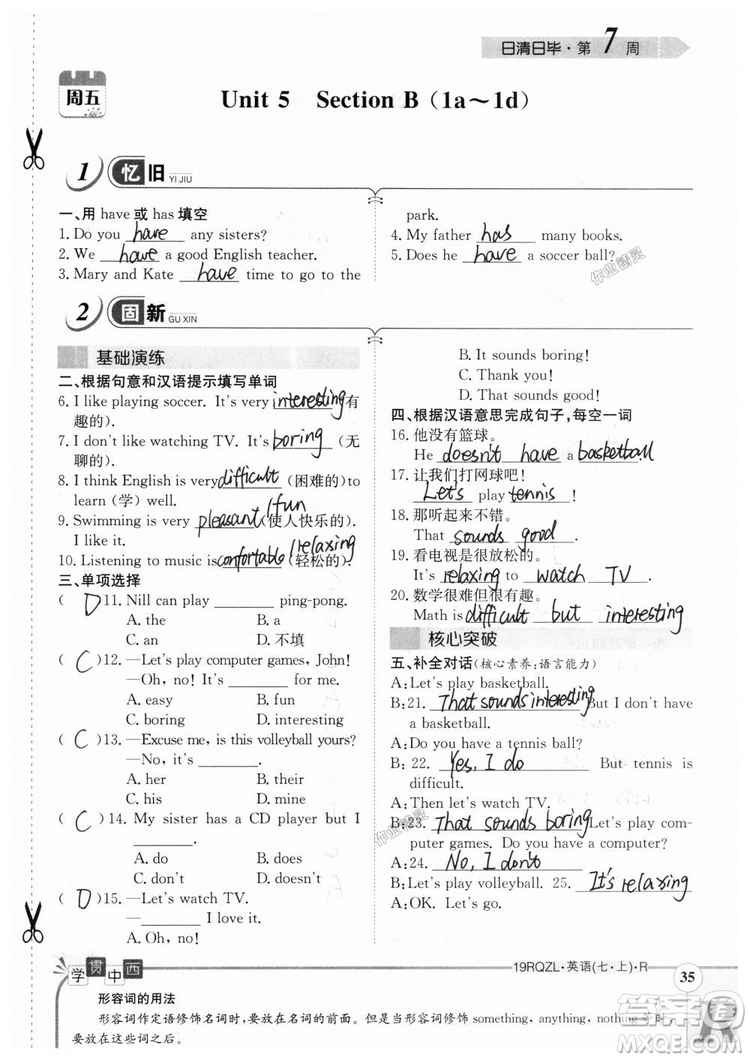 日清日毕·第7周
周五
Unit 5 Section B（1a～1d）
1 忆旧 YI JIU
一、用 have 或 has 填空
1. Do you have any sisters?
2. We have a good English teacher.
3. Mary and Kate have time to go to the
park.
4. My father has many books.
5. Does he have a soccer ball?
2 固新 GU XIN
基础演练
二、根据句意和汉语提示填写单词
6. I like playing soccer. It's very interesting(有
趣的).
7. I don't like watching TV. It's boring (无
聊的).
8. I think English is very difficult (困难的)to
learn (学) well.
9. Swimming is very pleasant/fun(使人快乐的).
I like it.
10. Listening to music is confortable/relaxing(轻松的).
三、单项选择
( D )11. Nill can play ______ ping-pong.
A. the B. a
C. an D. 不填
( C )12. —Let's play computer games, John!
—Oh, no! It's ______ for me.
A. easy B. fun
C. boring D. interesting
( C )13. —Excuse me, is this volleyball yours?
—Oh, no. It's ______.
A. her B. their
C. his D. mine
( C )14. My sister has a CD player but I
______.
A. do B. does
C. don't D. doesn't
( D )15. —Let's watch TV.
—______ I love it.
A. Oh, no!
B. It sounds boring!
C. Thank you!
D. That sounds good!
四、根据汉语意思完成句子,每空一词
16. 他没有篮球。
He doesn't have a basketball.
17. 让我们打网球吧!
Let's play tennis!
18. 那听起来不错。
That sounds good.
19. 看电视是很放松的。
It's relaxing to watch TV.
20. 数学很难但很有趣。
Math is difficult but interesting
核心突破
五、补全对话(核心素养:语言能力)
A: Let's play basketball.
B: 21. That sounds interesting But I don't have
a basketball.
A: Do you have a tennis ball?
B: 22. Yes, I do But tennis is
difficult.
A: Then let's watch TV.
B: 23. That sounds boring Let's play com-
puter games. Do you have a computer?
A: 24. No, I don't
B: Let's play volleyball. 25. It's relaxing
A: OK. Let's go.
19RQZL·英语(七·上)·R 35
学贯中西
形容词的用法
形容词作定语修饰名词时,要放在名词的前面。但是当形容词修饰 something, anything, nothing 等时,
要放在这些词之后。
作业精灵
作业精灵
MXQE.COM